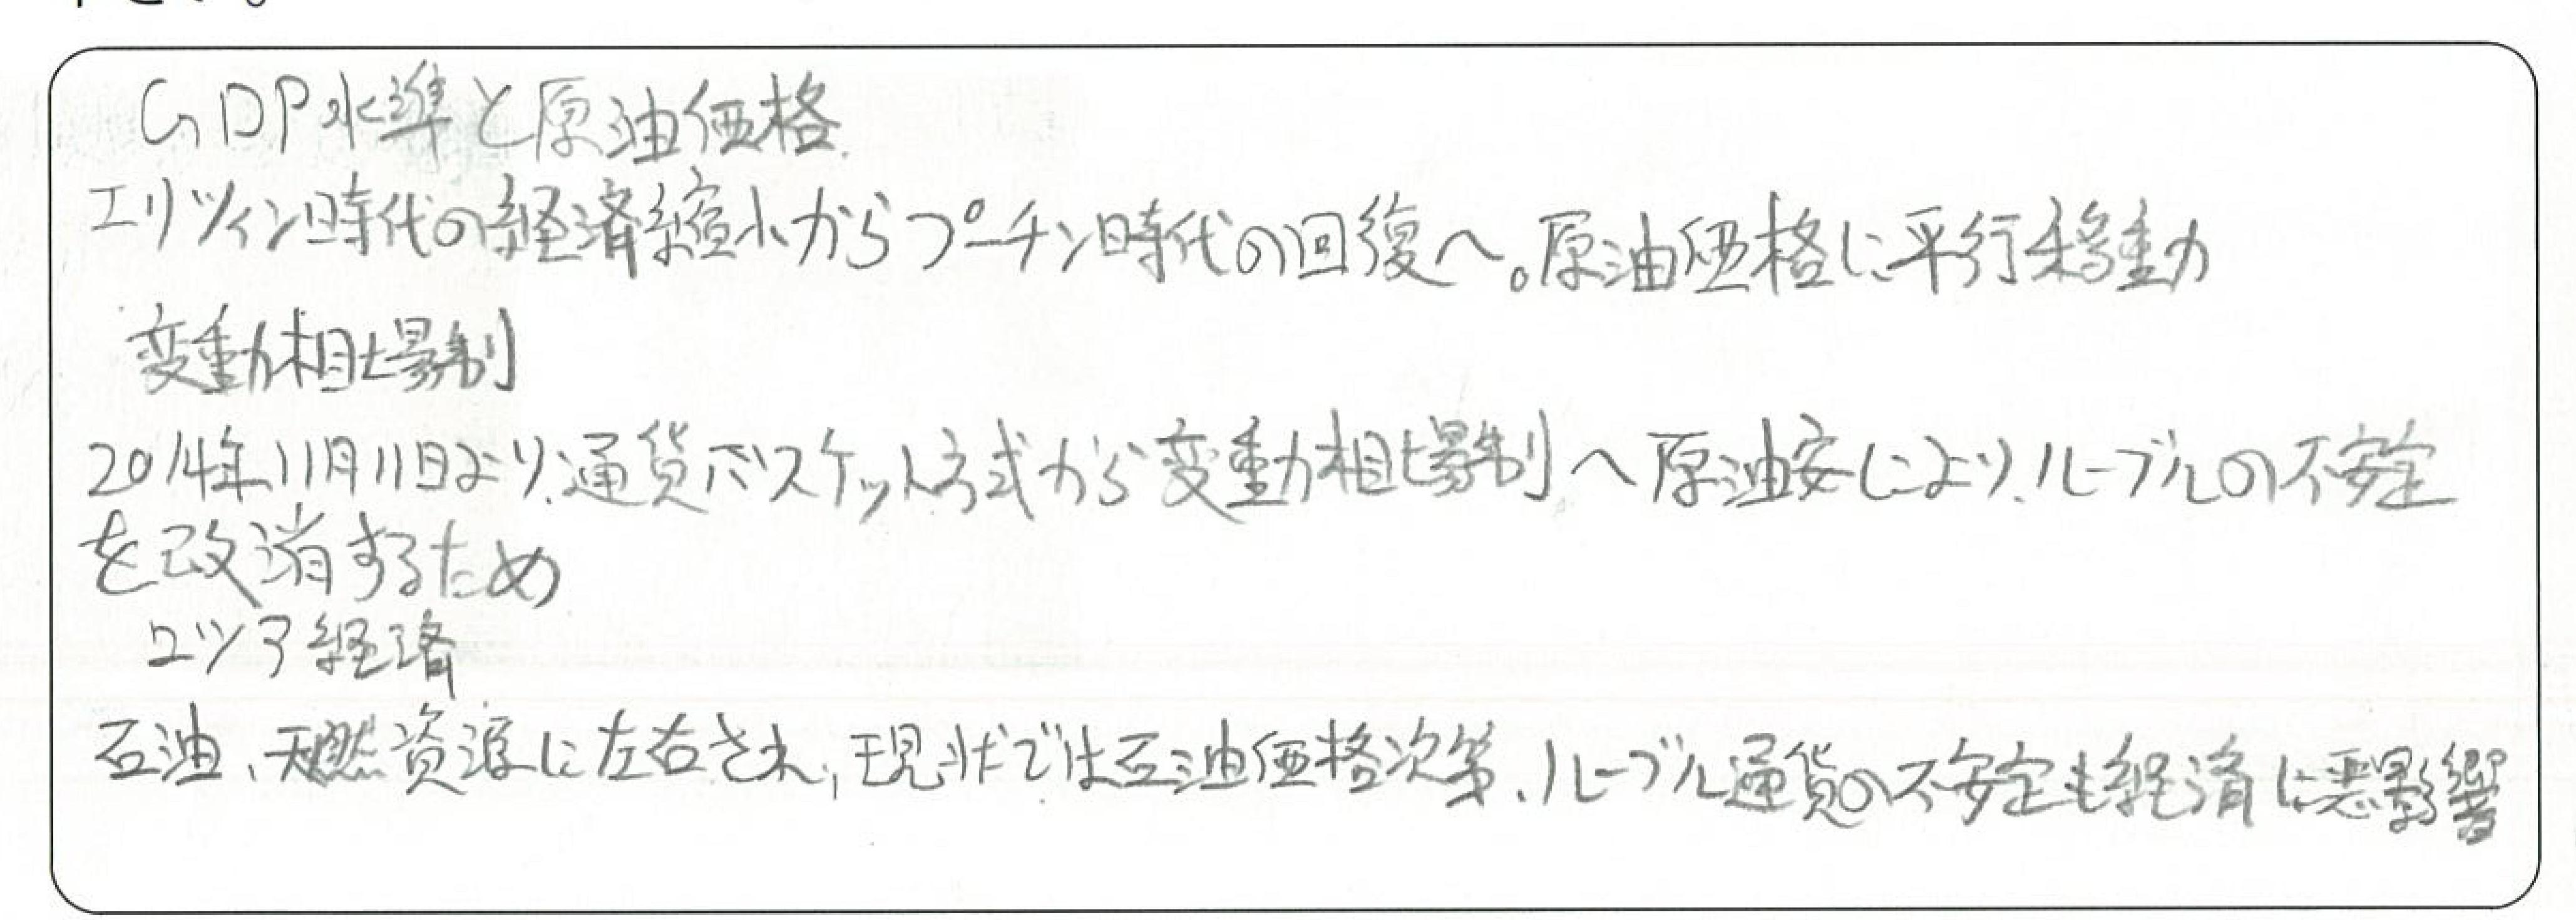 GDP水準と原油価格
エリツィン時代の経済縮小からプーチン時代の回復へ。原油価格に平行移動
変動相場制
2014年11月11日より、通貨バスケット方式から変動相場制へ原油安により、ルーブルの不安定
を改消するため
ロシア経済
石油、天然資源に左右され、現状では石油価格次第、ルーブル通貨の不安定も経済に悪影響